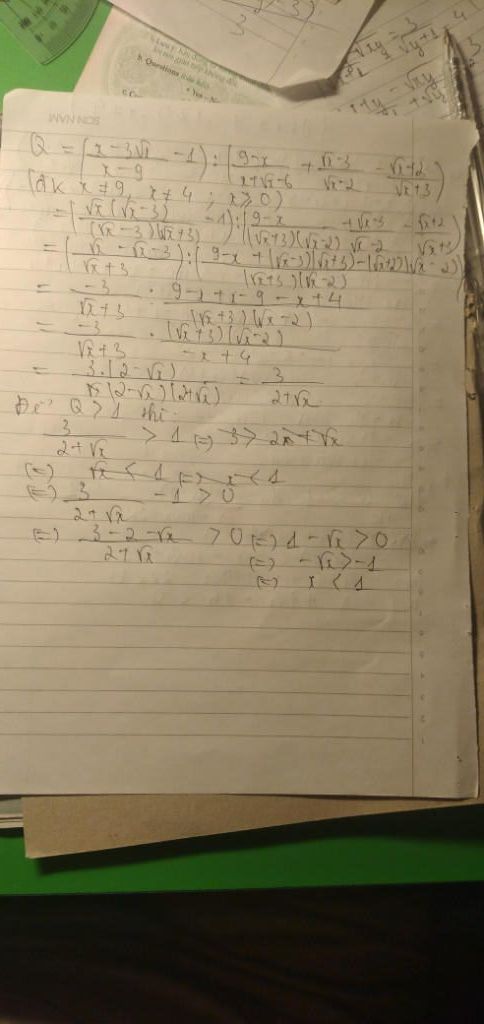 SƠN NAM
b. Questions
Q = (x-3√x / x-9 - 1) : (9-x / x+√x-6 + √x-3 / √x-2 - √x+2 / √x+3)
(đk x≠9, x≠4; x≥0)
= (√x(√x-3) / (√x-3)(√x+3) - 1) : (9-x / (√x+3)(√x-2) + √x-3 / √x-2 - √x+2 / √x+3)
= (√x-√x-3 / √x+3) : (9-x+(√x-3)(√x+3)-(√x+2)(√x-2) / (√x+3)(√x-2))
= -3 / √x+3 : 9-x+x-9-x+4 / (√x+3)(√x-2)
= -3 / √x+3 . (√x+3)(√x-2) / -x+4
= 3.(2-√x) / (2-√x)(2+√x) = 3 / 2+√x
Để Q > 1 thì
3 / 2+√x > 1 (=) 3 > 2+√x
(=) √x < 1 (=) x < 1
(=) 3 / 2+√x - 1 > 0
(=) 3-2-√x / 2+√x > 0 (=) 1-√x > 0
(=) -√x > -1
(=) x < 1